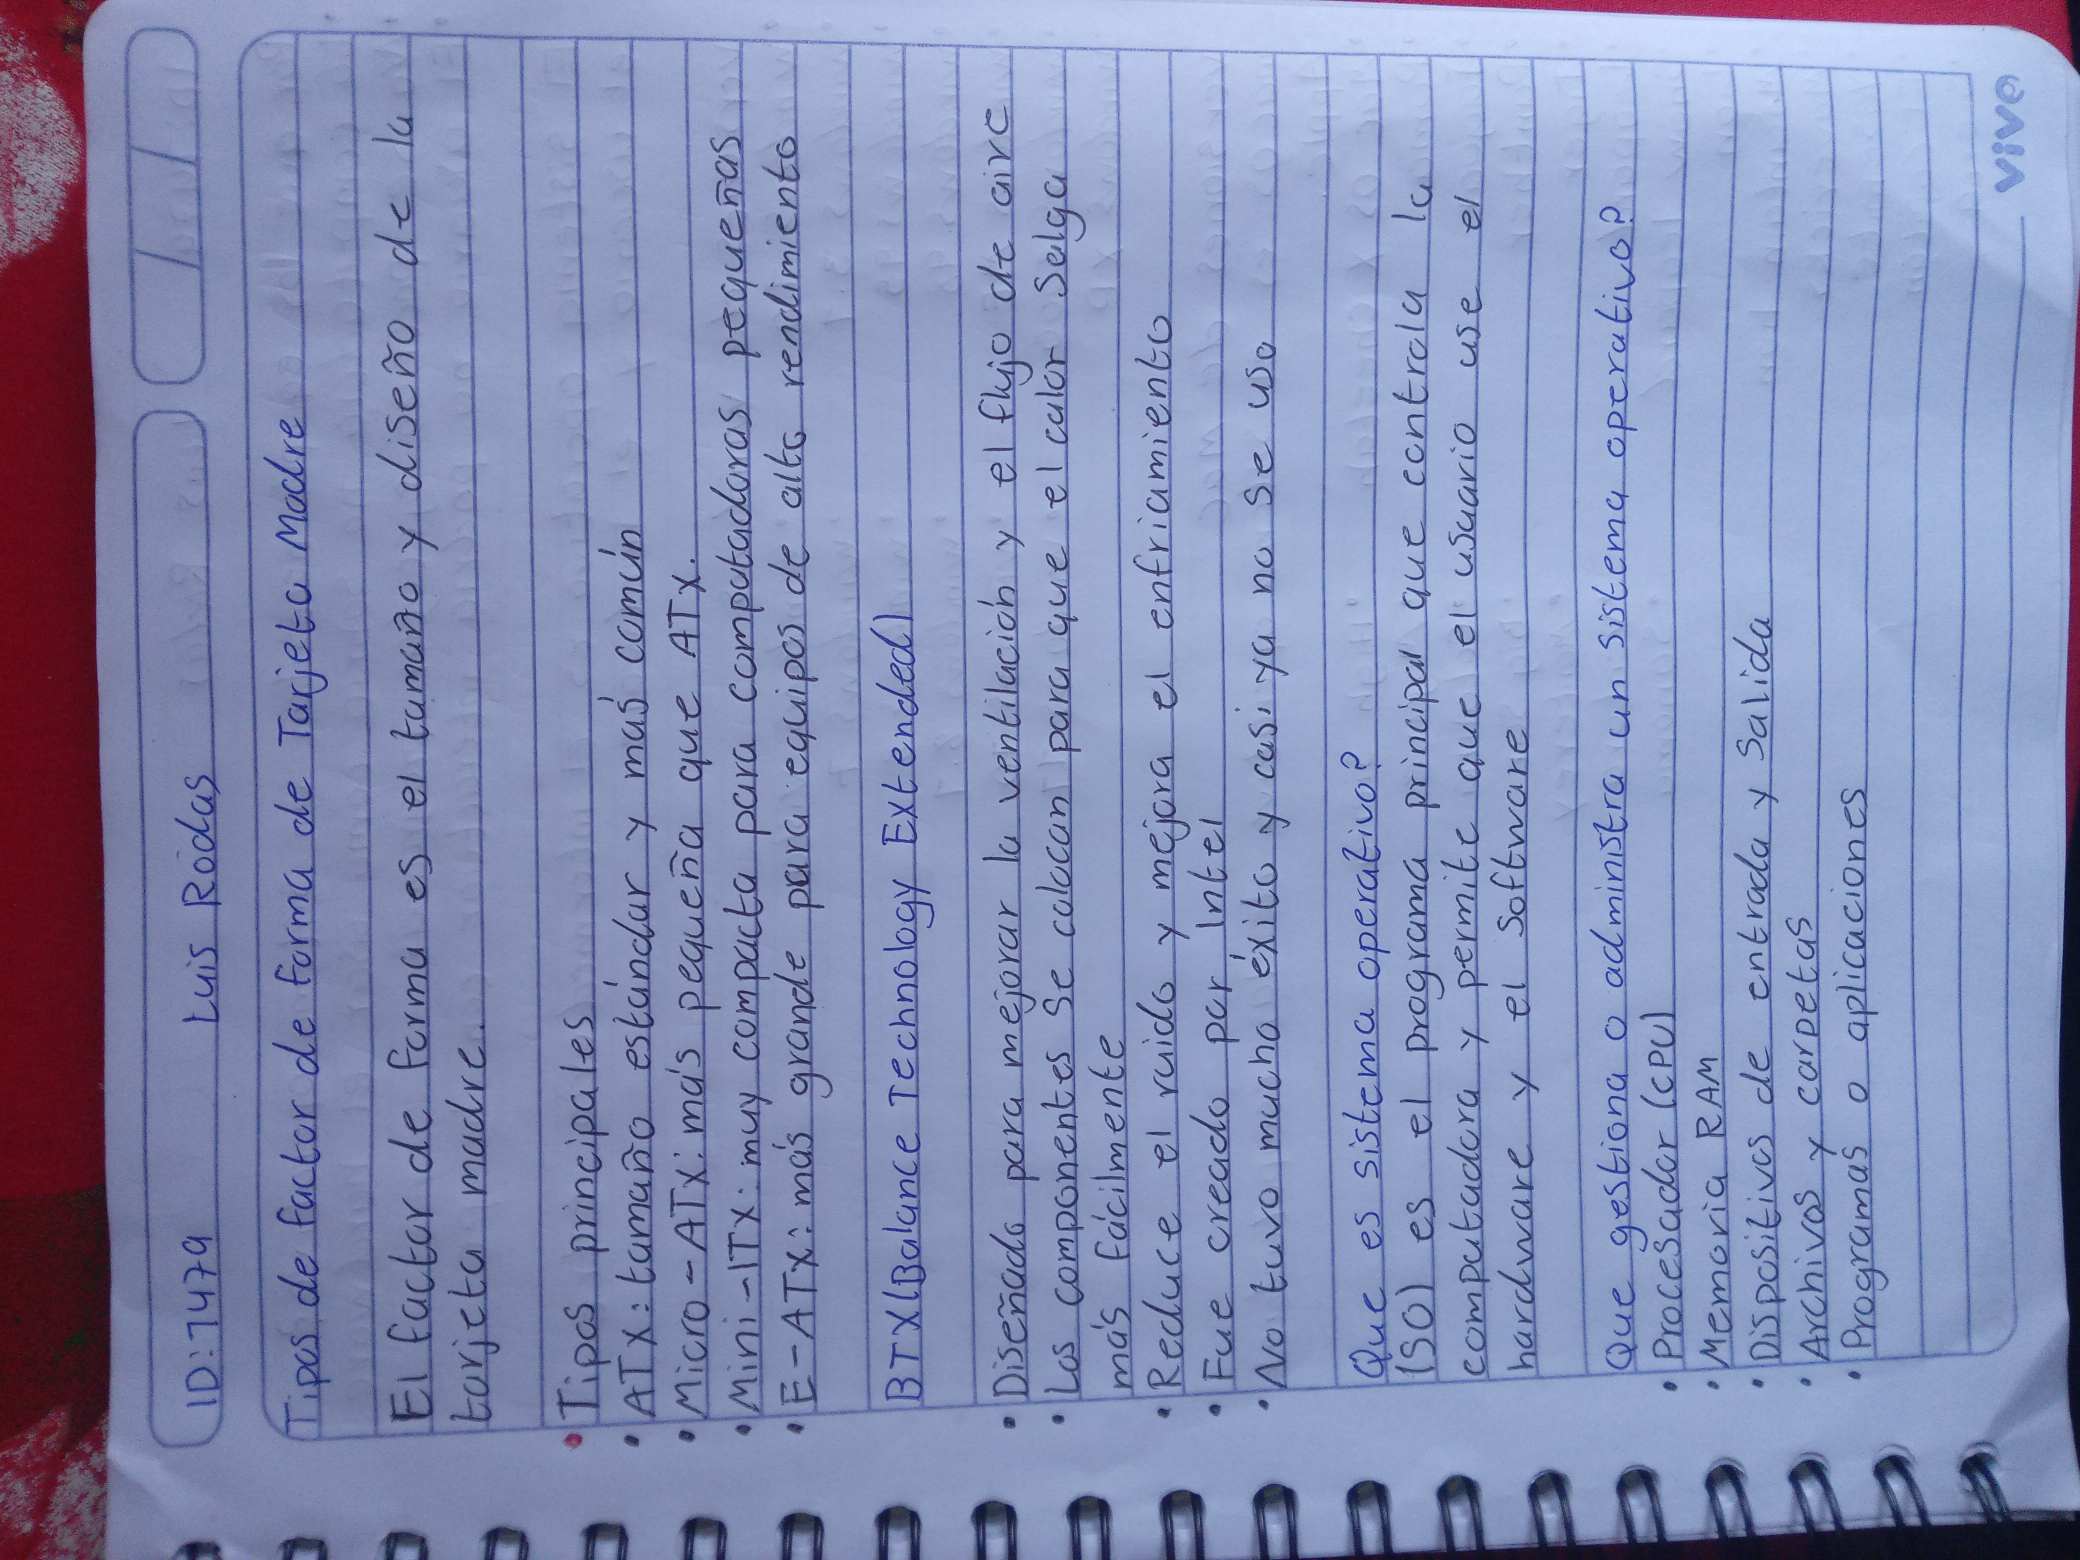 ID: 7479 Luis Rodas
Tipos de factor de forma de Tarjeta Madre
El factor de forma es el tamaño y diseño de la
tarjeta madre.
• Tipos principales
• ATX: tamaño estándar y más común
• Micro-ATX: más pequeña que ATX.
• Mini-ITX: muy compacta para computadoras pequeñas
• E-ATX: más grande para equipos de alto rendimiento
BTX (Balance Technology Extended)
• Diseñado para mejorar la ventilación y el flujo de aire
• Los componentes se colocan para que el calor salga
más fácilmente
• Reduce el ruido y mejora el enfriamiento
• Fue creado por Intel
• No tuvo mucho éxito y casi ya no se usa
Que es sistema operativo?
(SO) es el programa principal que controla la
computadora y permite que el usuario use el
hardware y el software
Que gestiona o administra un sistema operativo?
• Procesador (CPU)
• Memoria RAM
• Dispositivos de entrada y salida
• Archivos y carpetas
• Programas o aplicaciones
vivo